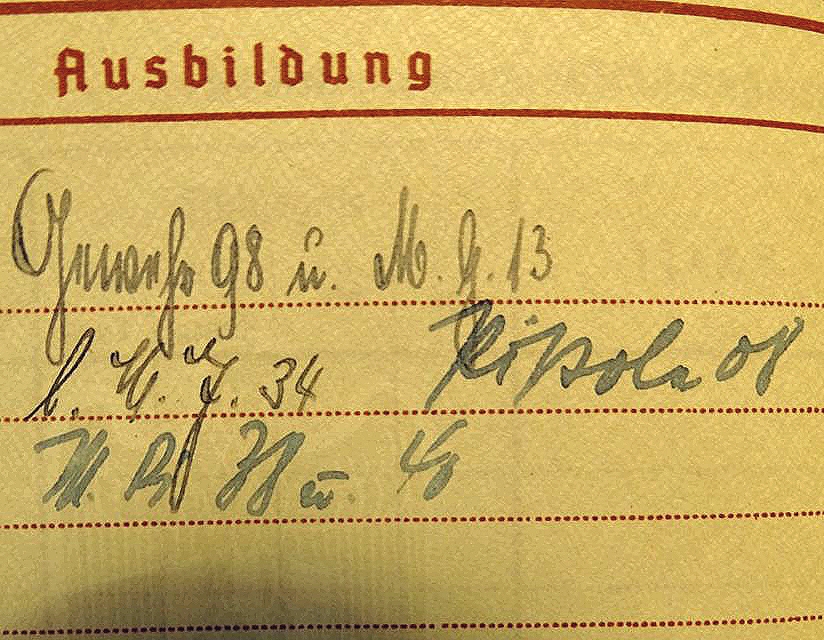 Ausbildung
Gewehr 98 u. M. G. 13
l. M. G. 34 Pistole 08
M. Pi 38 u. 40